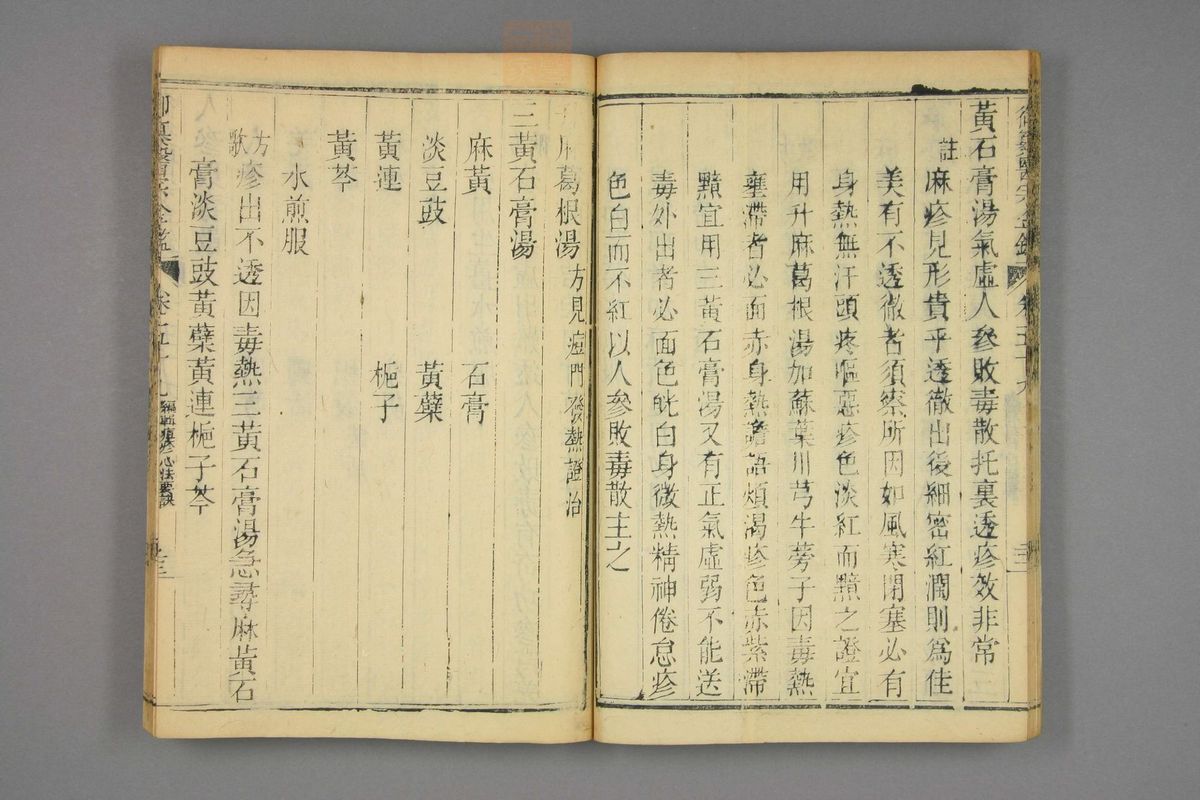 御纂醫宗金鑑 卷五十九
黃石膏湯氣虛人參敗毒散托裏透疹效非常
註
麻疹見形貴乎透徹出後細密紅潤則為佳
美有不透徹者須察所因如風寒閉塞必有
身熱無汗頭疼嘔惡疹色淡紅而黯之證宜
用升麻葛根湯加蘇葉川芎牛蒡子因毒熱
壅滯者必面赤身熱譫語煩渴疹色赤紫滯
黯宜用三黃石膏湯又有正氣虛弱不能送
毒外出者必面色㿠白身微熱精神倦怠疹
色白而不紅以人參敗毒散主之
麻葛根湯 方見痘門發熱證治
三黃石膏湯
麻黃 石膏
淡豆豉 黃蘗
黃連 梔子
黃芩
水煎服
方歌 疹出不透因毒熱三黃石膏湯急尋麻黃石
膏淡豆豉黃蘗黃連梔子芩
御纂醫宗金鑑 卷五十九 編輯痘疹心法要訣